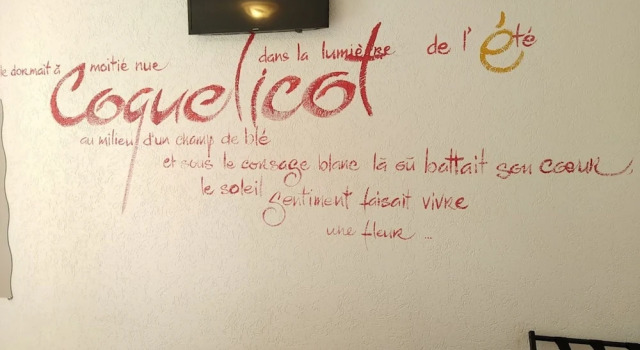 le dormait à moitié nue dans la lumière de l' été
Coquelicot
au milieu d'un champ de blé
et sous le corsage blanc là où battait son cœur
le soleil
Gentiment faisait vivre
une fleur ...